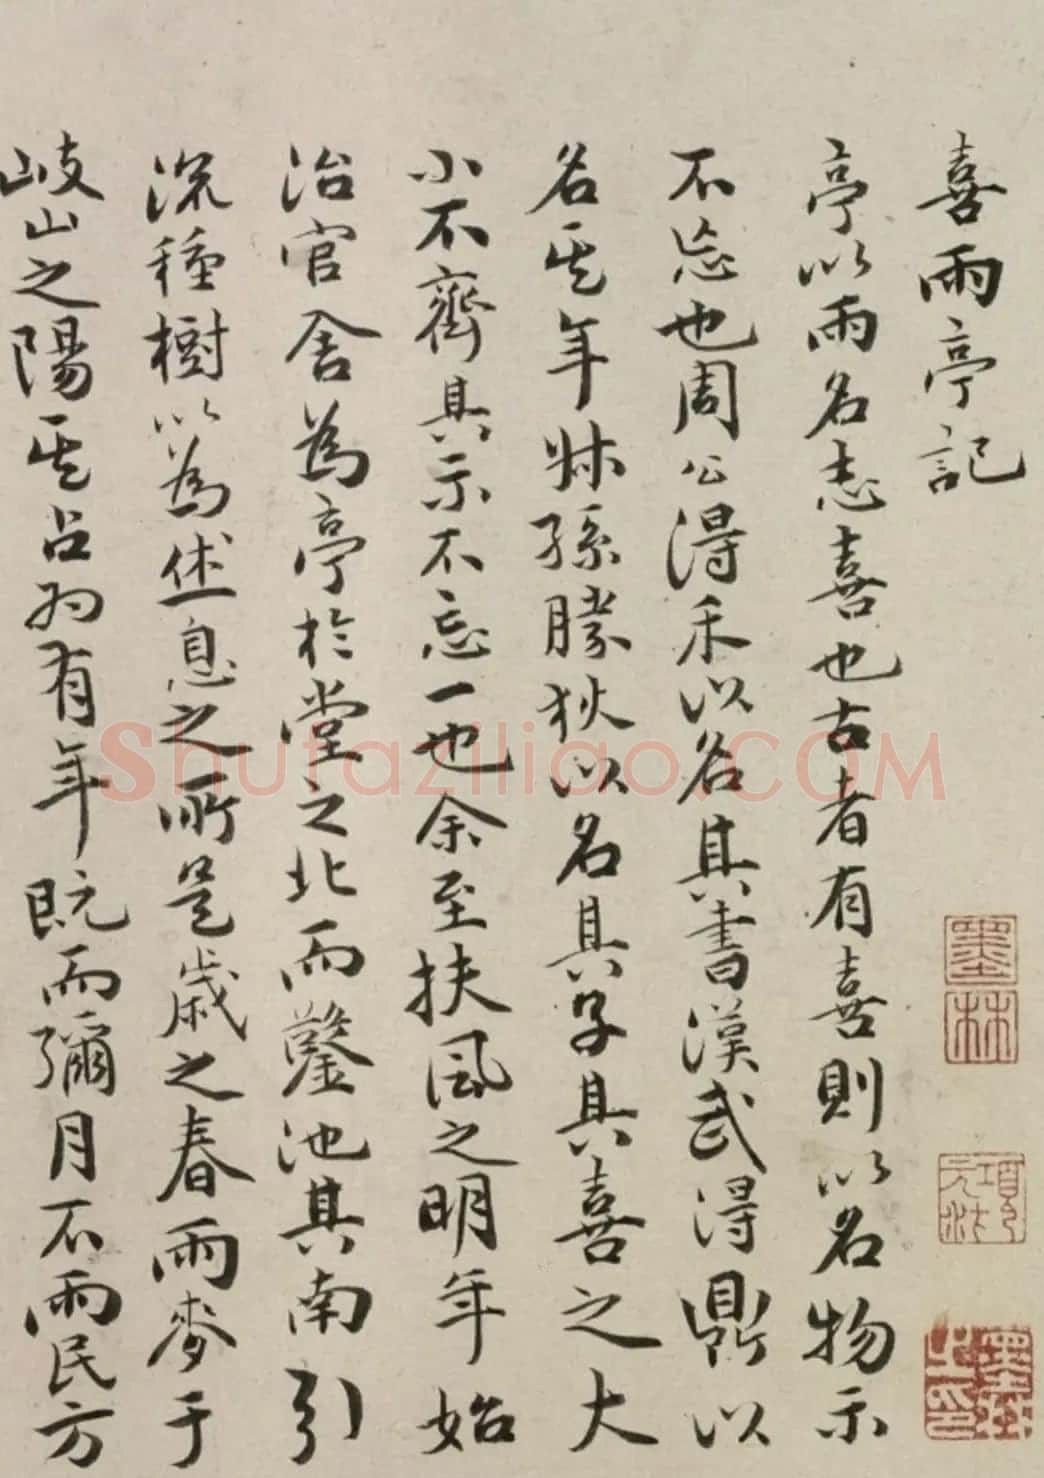 喜雨亭記
亭以雨名志喜也古者有喜則以名物示
不忘也周公得禾以名其書漢武得鼎以
名其年叔孫勝狄以名其子其喜之大
小不齊其示不忘一也余至扶風之明年始
治官舍為亭於堂之北而鑿池其南引
流種樹以為休息之所是歲之春雨麥于
岐山之陽其占為有年既而彌月不雨民方
墨林
項元汴印
Shufaziliao.COM